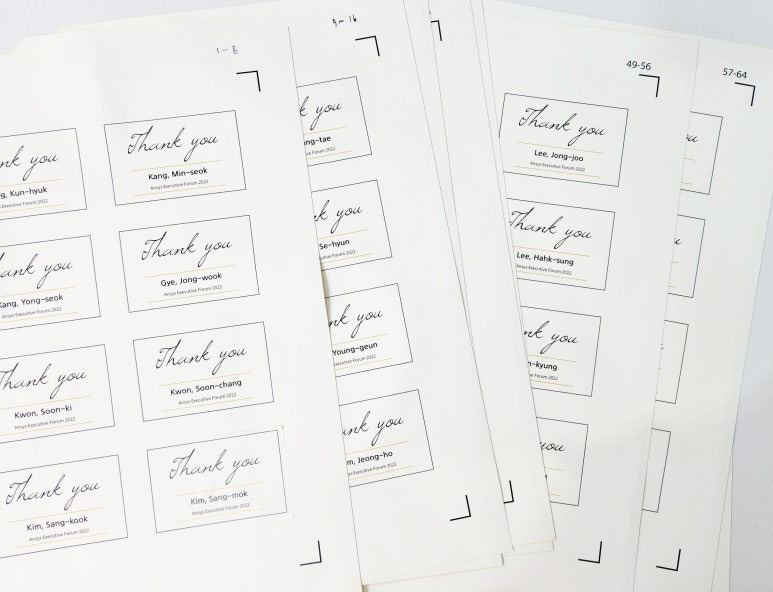 1-8
Thank you
Kang, Min-seok
Ansys Executive Forum 2022
Kun-hyuk
Executive Forum 2022
Thank you
Gye, Jong-wook
Ansys Executive Forum 2022
you
Kang, Yong-seok
Ansys Executive Forum 2022
Thank you
Kwon, Soon-chang
Ansys Executive Forum 2022
Thank you
Kwon, Soon-ki
Ansys Executive Forum 2022
Thank you
Kim, Sang-mok
Ansys Executive Forum 2022
Thank you
Kim, Sang-kook
Ansys Executive Forum 2022
9~16
you
Forum 2022
you
Se-hyun
Forum 2022
you
Young-geun
Executive Forum 2022
you
Jeong-ho
Executive Forum 2022
49-56
Thank you
Lee, Jong-joo
Ansys Executive Forum 2022
Thank you
Lee, Hahk-sung
Ansys Executive Forum 2022
you
Forum 2022
you
57-64